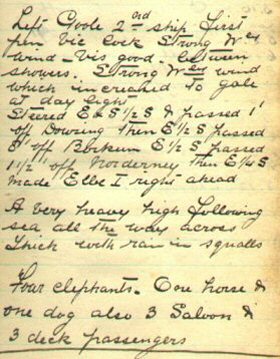 Left Goole 2nd ship first
pen Vic Lock Strong Wly
wind - Vis good. between
showers. Strong Wly wind
which increased to gale
at day light.
Steered E & S ½ S & passed 1'
off Dowsing then E ½ S passed
8' off Borkum E ½ S passed
1½' off Norderney then E ¼ S
made Elbe I right ahead
A very heavy high following
sea all the way across
thick with rain in squalls
Four elephants - One horse &
one dog also 3 Saloon &
3 deck passengers